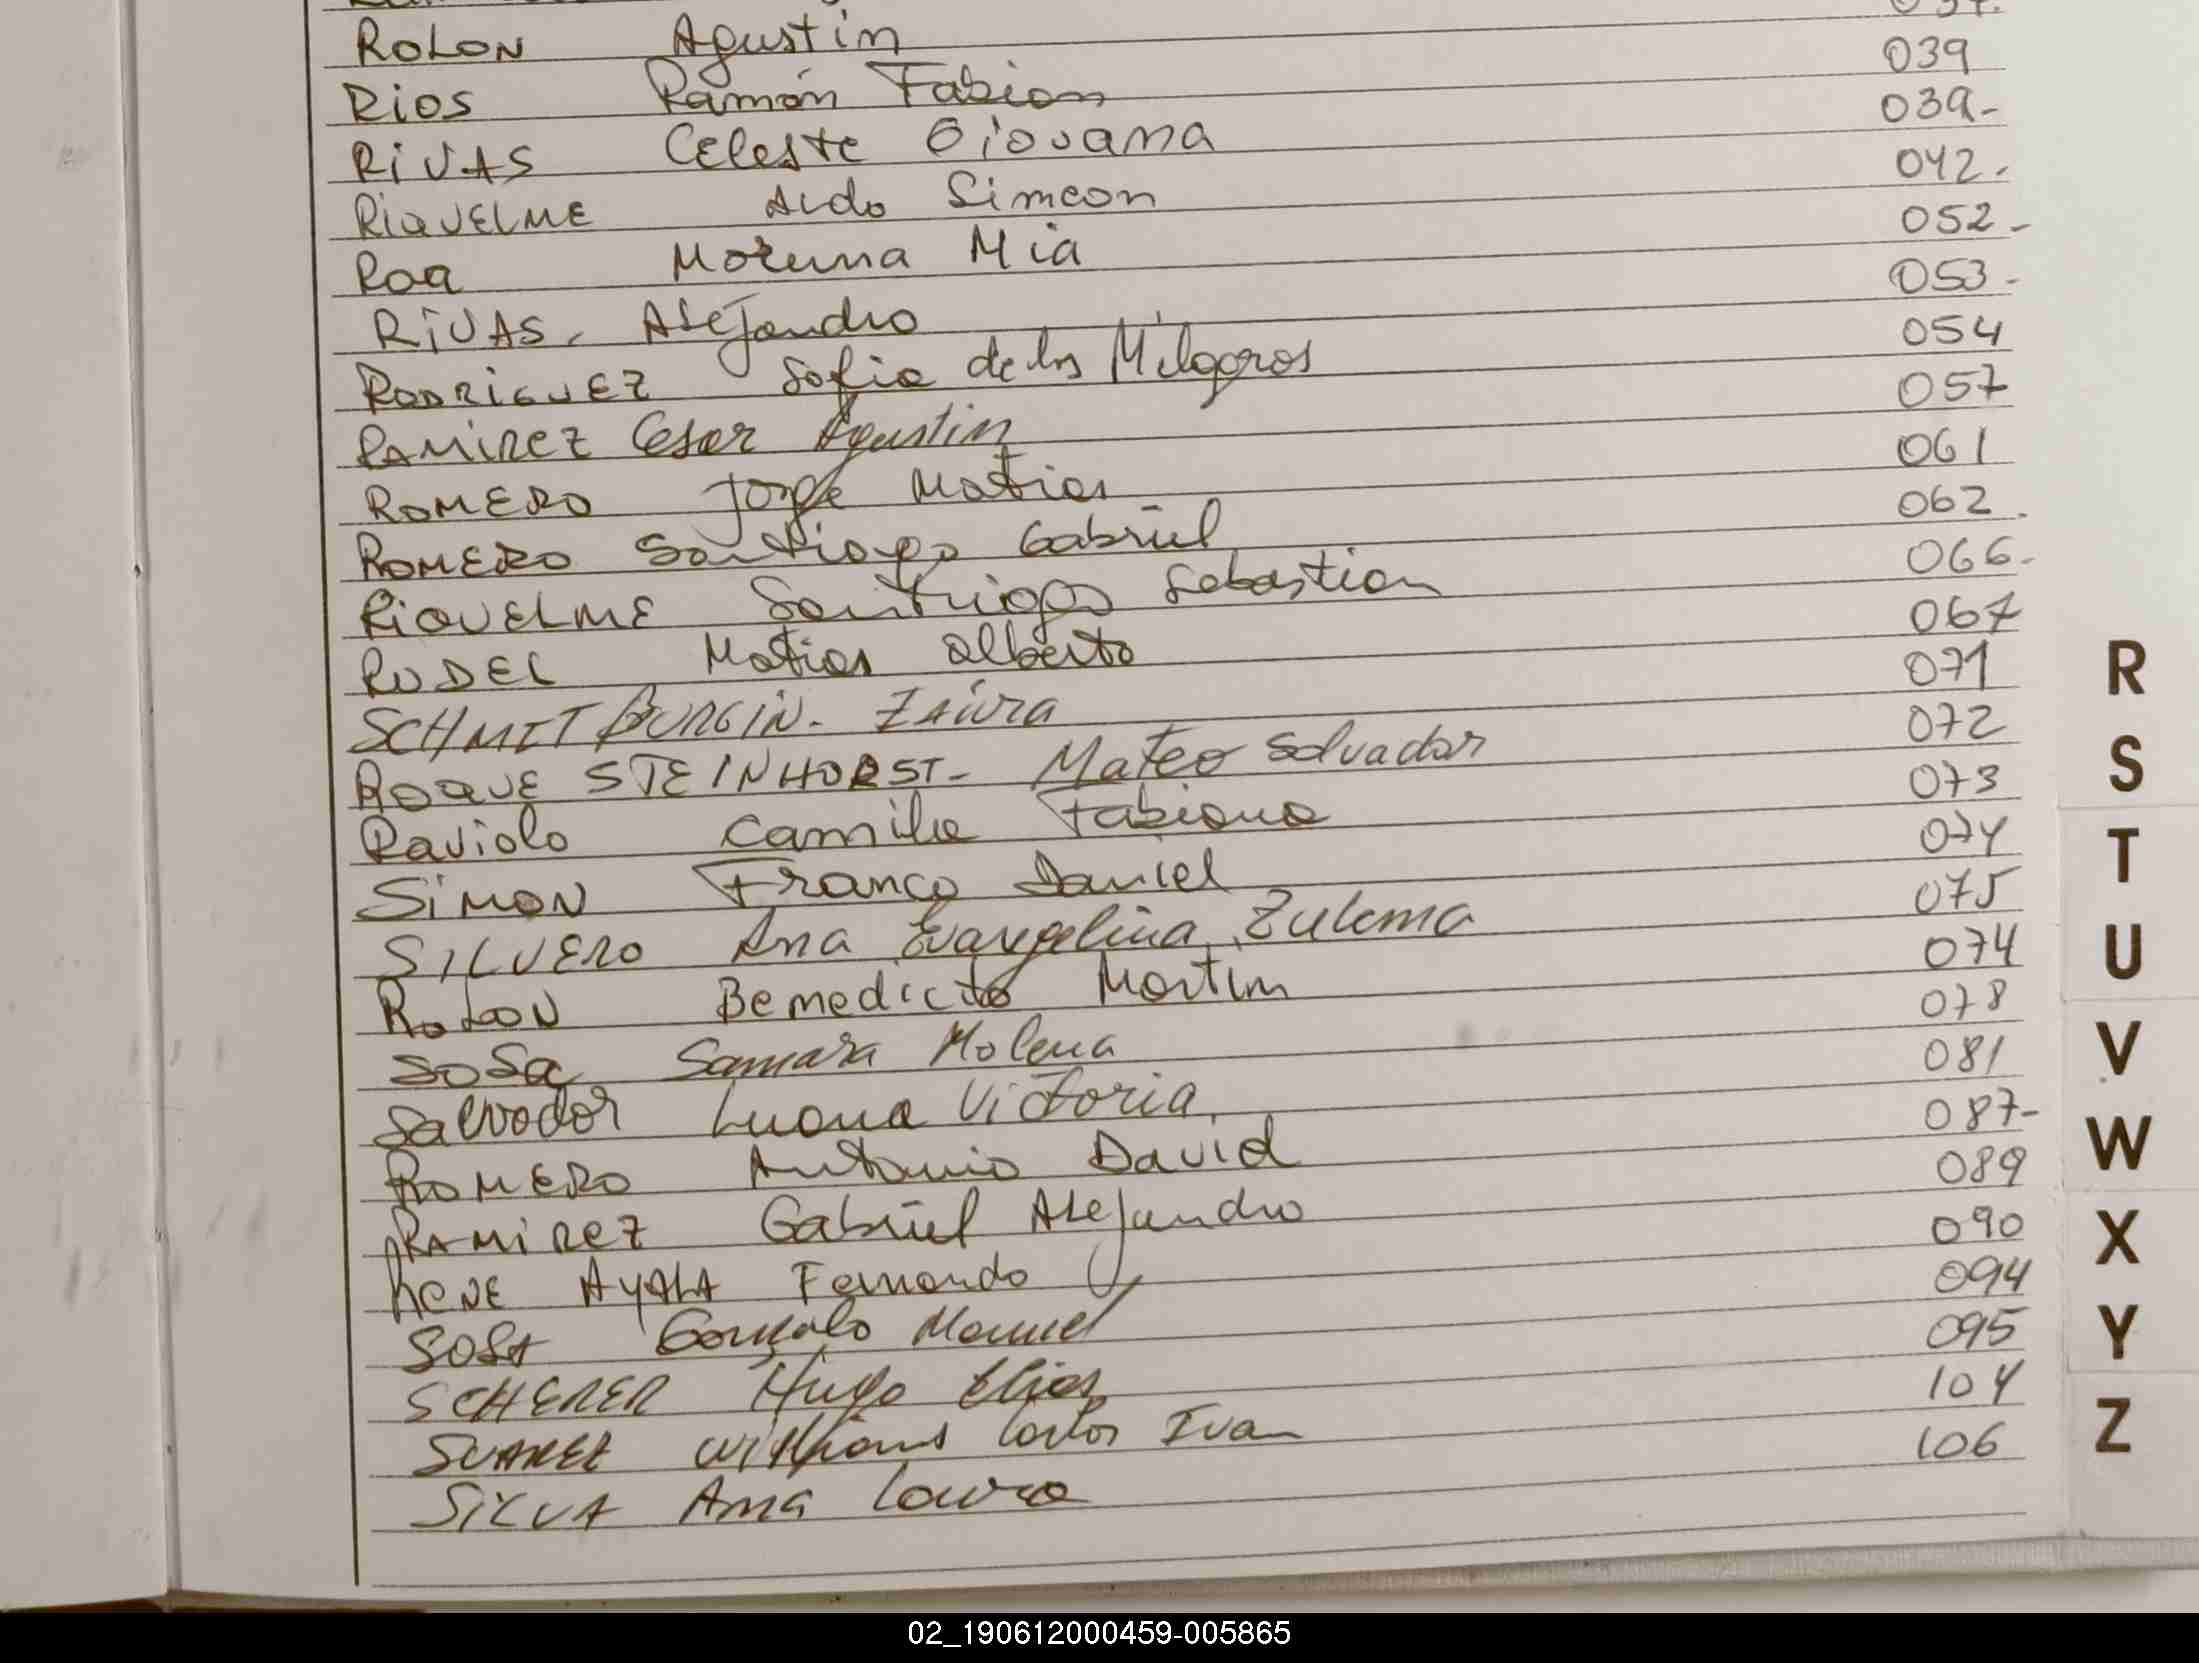 ROLON Agustin 037.
RiOS Ramón Fabian 039
RiVAS Celeste Giovana 039-
RiQUELME Aldo Simeon 042.
Roa Morena Mia 052-
RiVAS. Alejandro 053-
RODRiGUEZ Sofia de los Milagros 054
RAMiREZ Cesar Agustin 057
ROMERO Jorge Matias 061
ROMERO Santiago Gabriel 062.
RiQUELME Santiago Sebastian 066-
RUDEL Matias Alberto 067
SCHMIT BURGiN- ZAiRA 071
ROQUE STEINHORST- Mateo Salvador 072
Raviolo Camila Fabiana 073
SiMON Franco Daniel 074
SILVERO Ana Evangelina Zulema 075
ROLON Benedicto Martin 074
SOSa Samara Molena 078
Salvador Luana Victoria 081
ROMERO Antonio David 087-
RAMiREZ Gabriel Alejandro 089
RENE AYALA Fernando 090
SOSA Gonzalo Manuel 094
SCHERER Hugo Elias 095
SUAREZ Williams Carlos Ivan 104
SiLVA Ana Laura 106
R
S
T
U
V
W
X
Y
Z
02_190612000459-005865